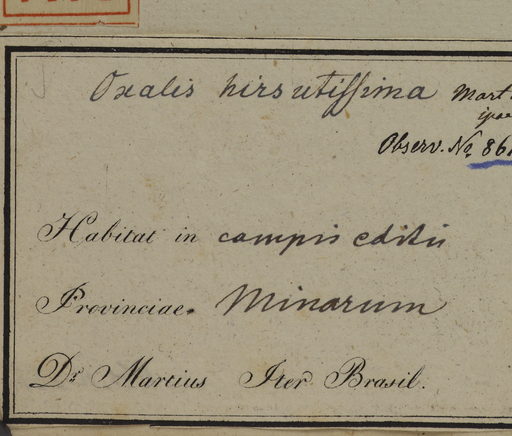 Oxalis hirsutissima Mart
Observ. No. 86
Habitat in campis editis
Provinciae Minarum
Dr. Martius Iter Brasil.